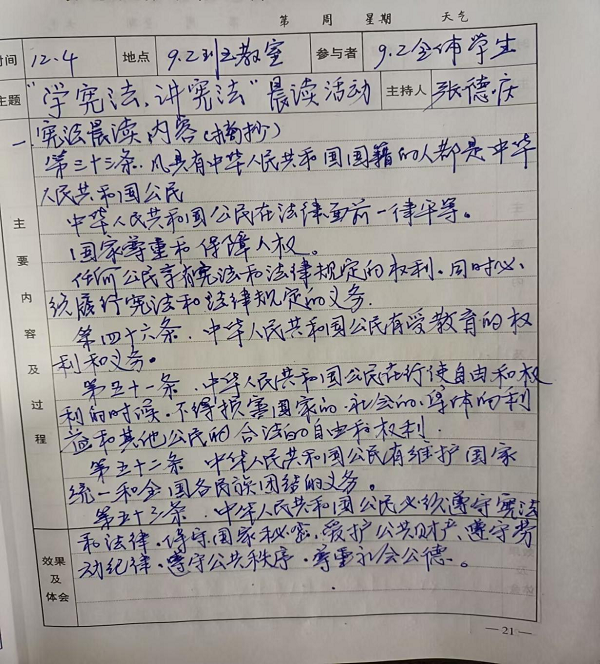 第 周 星期 天气
时间 12.4 地点 9.2班教室 参与者 9.2全体学生
主题 “学宪法、讲宪法”晨读活动 主持人 张德庆
一、宪法晨读内容(摘抄)
第三十三条.凡具有中华人民共和国国籍的人都是中华
人民共和国公民
中华人民共和国公民在法律面前一律平等。
国家尊重和保障人权。
任何公民享有宪法和法律规定的权利.同时必
须履行宪法和法律规定的义务.
第四十六条.中华人民共和国公民有受教育的权
利和义务。
第五十一条.中华人民共和国公民在行使自由和权
利的时候.不得损害国家的.社会的.集体的利
益和其他公民的合法的自由和权利.
第五十二条 中华人民共和国公民有维护国家
统一和全国各民族团结的义务。
第五十三条.中华人民共和国公民必须遵守宪法
和法律.保守国家秘密.爱护公共财产、遵守劳
动纪律.遵守公共秩序.尊重社会公德。
主要内容及过程
效果
及
体会
—21—